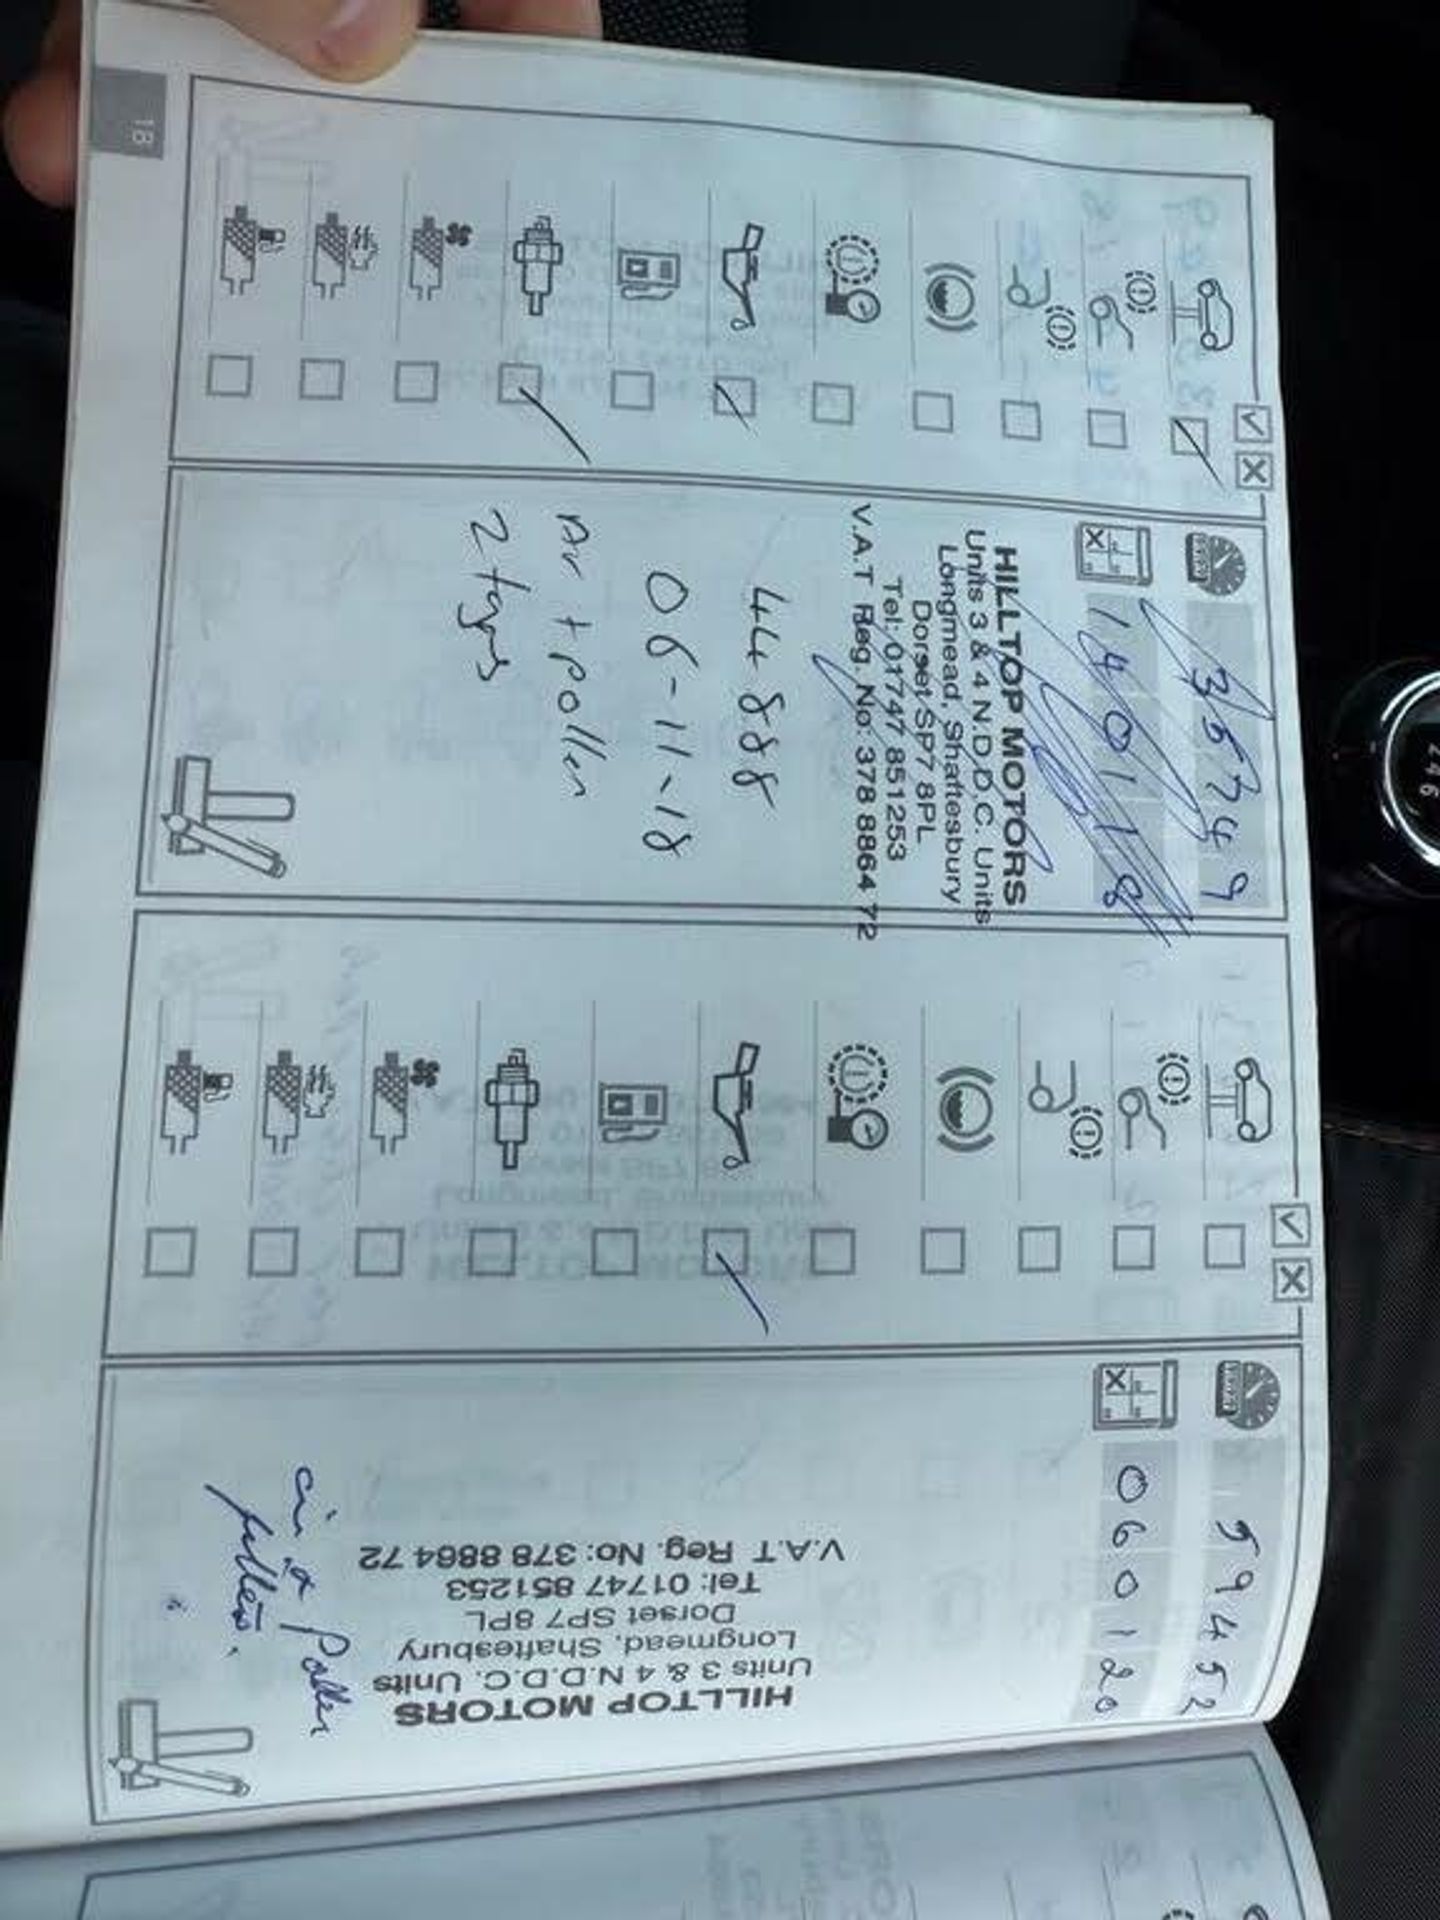 35749
140118
HILLTOP MOTORS
Units 3 & 4 N.D.D.C. Units
Longmead, Shaftesbury
Dorset SP7 8PL
Tel: 01747 851253
V.A.T Reg. No: 378 8864 72
44888
06-11-18
Air + pollen
2 tyres
18
59452
060120
HILLTOP MOTORS
Units 3 & 4 N.D.D.C. Units
Longmead, Shaftesbury
Dorset SP7 8PL
Tel: 01747 851253
V.A.T Reg. No: 378 8864 72
air & Pollen
filters.
2 4 6